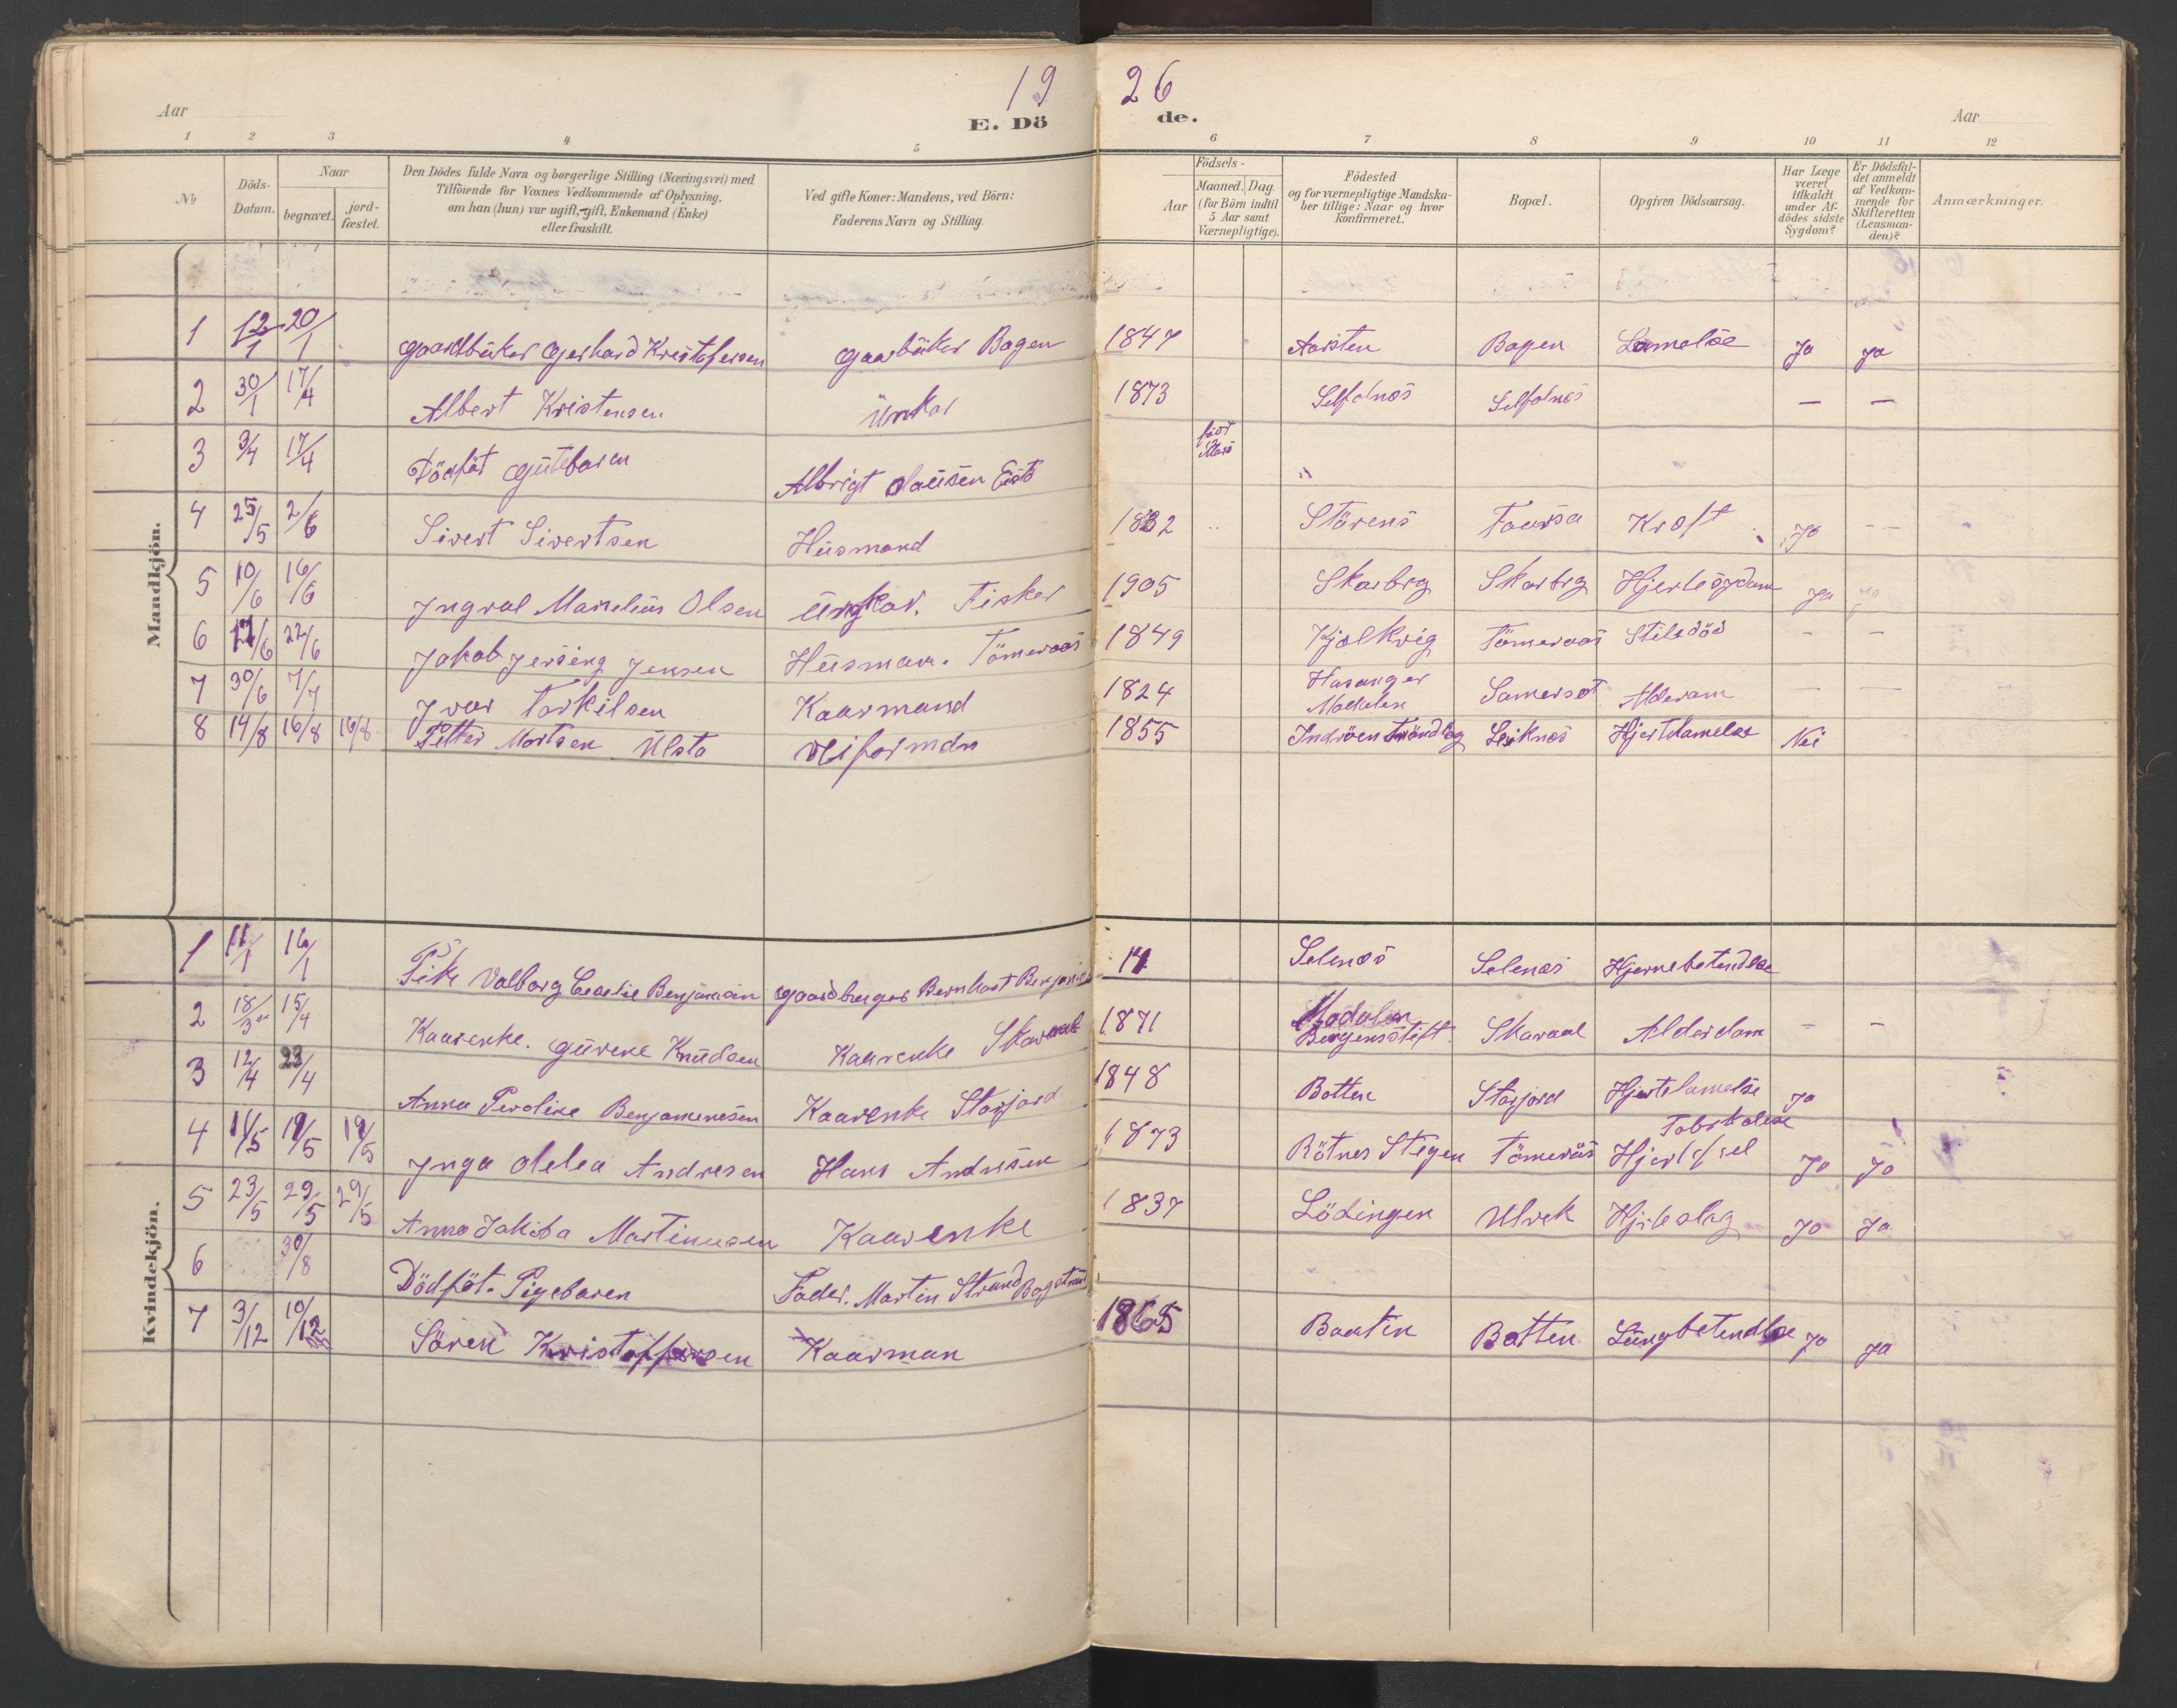 19 26
Aar E. Dö de. Aar
1 2 3 4 5 6 7 8 9 10 11 12
No
Döds-Datum.
Naar
begravet.
jord-fæstet.
Den Dödes fulde Navn og borgerlige Stilling (Næringsvei) med
Tilföiende for Voxnes Vedkommende af Oplysning,
om han (hun) var ugift, gift, Enkemand (Enke)
eller fraskilt.
Ved gifte Koner: Mandens, ved Börn:
Faderens Navn og Stilling.
Födsels-
Aar
Maaned. Dag.
(for Börn indtil
5 Aar samt
Værnepligtige).
Födested
og for værnepligtige Mandska-
ber tillige: Naar og hvor
konfirmeret.
Bopæl.
Opgiven Dödsaarsag.
Har Læge
været
tilkaldt
under Af-
dödes sidste
Sygdom?
Er Dödsfal-
det anmeldt
af Vedkom-
mende for
Skifteretten
(Lensman-
den)?
Anmærkninger.
Mandkjön.
1 12/1 20/1 Gaardbüker Gjerhard Kristofersen Gaarbüker Bogen 1847 Aarsten Bogen Lamelse Ja Ja
2 30/1 17/4 Albert Kristensen Ünkar 1873 Selfolnos Selfolnos — —
3 3/4 17/4 Dödföt Gütebaren Albrigt Olaüsen födt Mars "
4 25/5 2/6 Sivert Sivertsen Hüsmand 1832 Störens Taarsa Kroft Jo - -
5 10/6 16/6 Jngval Manelius Olsen Üngkar. Fisker 1905 Skarbrg Skarbrg Hjertesygdam Ja Jo
6 17/6 22/6 Jakob Jersing Jensen Hüsman. Tömeraas 1849 Kjolkvig Tömeraas Stiledöd - -
7 30/6 7/7 Jvar Torkilsen Kaarmand 1824 Hasanger Madalen Samersat Alderam — —
8 14/8 16/8 16/8 Petter Mortsen Ulsta Veiformdn 1855 Indröen Tröndlag Leiknos Hjertelamelse Nei
Kvindekjön.
1 11/1 16/1 Pike Valborg Benjamin Gaardbruger Bernhart 14 Selenos Selenos Hjernebetendlse
2 18/3 15/4 Kaarenke. Gürene Knüdsen Kaarenke Skaraal 1871 Modalen Bergensstift Skaraal Alderdom - -
3 12/4 23/4 Anna Peroline Benjamensen Kaarenke Storjord 1848 Botten Storjord Hjertelamelse Ja
4 11/5 19/5 19/5 Jnga Olelea Andresen Hans Andresen 1873 Rötnes Stegen Tömerås Hjertefeel Jo Jo
5 23/5 29/5 29/5 Anna Jakoba Martinusen Kaarenke 1837 Lödingen Ulvek Hjerteslag Jo Ja
6 30/8 Dödföt. Pigebaren Fader. Martin Strand
7 3/12 10/12 Sören Kristoffersen Kaarman 1865 Baaten Botten Lüngbetendlse Jo Ja